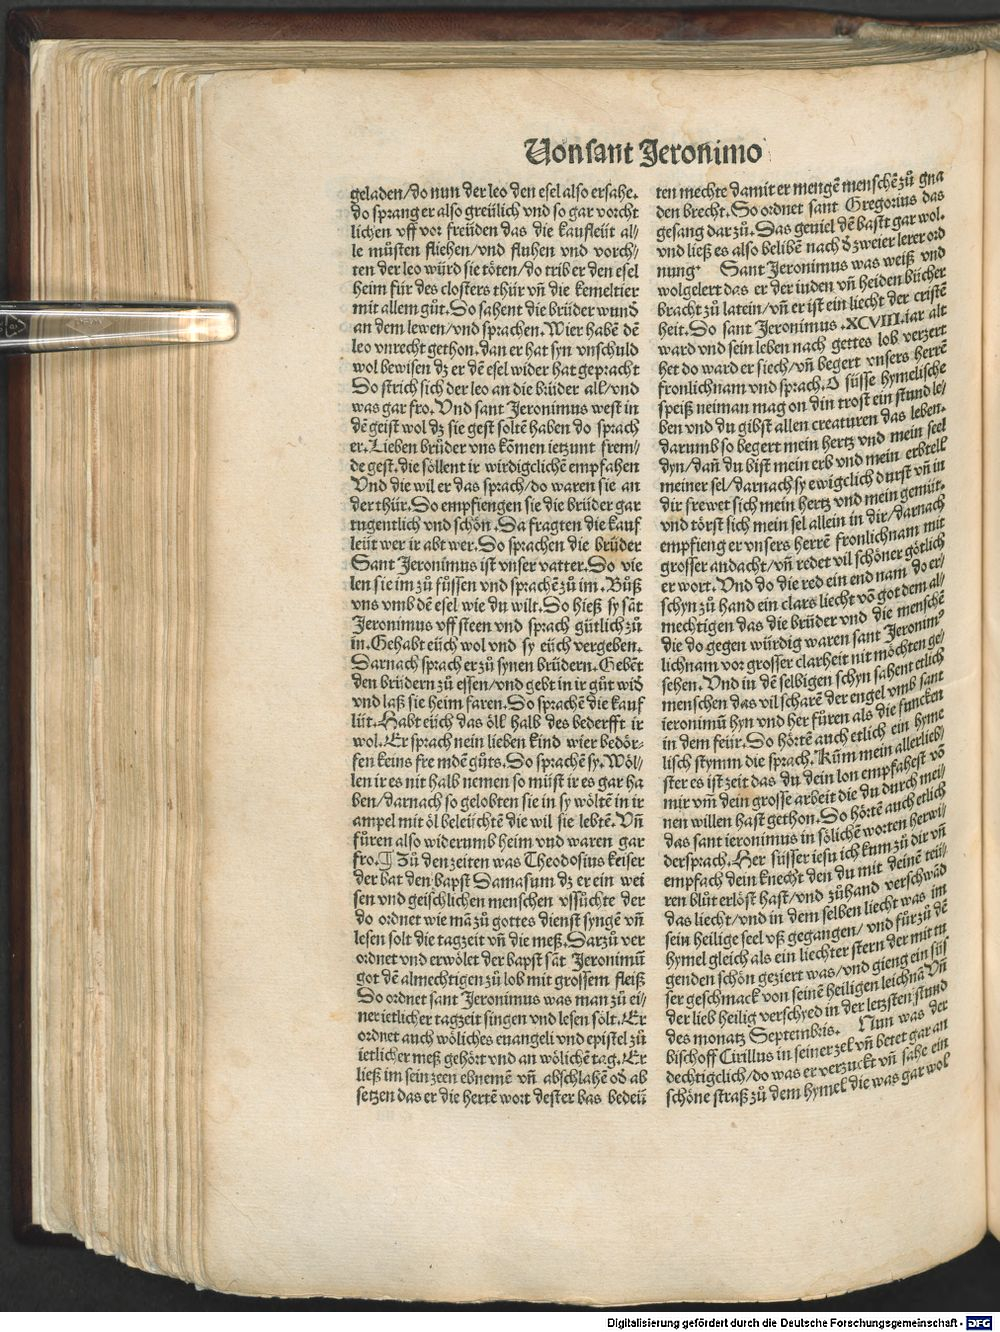 Von sant Jeronimo
geladen/do nun der leo den esel also ersahe.
do sprang er also greülich vnd so gar vorcht
lichen vff vor freüden das die kaufleüt al/
le müsten fliehen/vnd fluhen vnd vorch/
ten der leo würd sie töten/do trib er den esel
heim für des closters thür vñ die kemeltier
mit allem gůt. So sahent die brüder wund
an dem lewen/vnd sprachen. Wier habē dē
leo vnrecht gethon. dan er hat syn vnschuld
wol bewisen dz er dē esel wider hat gepracht
So strich sich der leo an die brüder all/vnd
was gar fro. Vnd sant Jeronimus west in
dē geist wol dz sie gest soltē haben do sprach
er. Lieben brůder vns kōmen ietzunt frem/
de gest. die söllent ir wirdigclichē empfahen
Vnd die wil er das sprach/do waren sie an
der thür. So empfiengen sie die brüder gar
tugentlich vnd schön. Da fragten die kauf
leüt wer ir abt wer. So sprachen die brüder
Sant Jeronimus ist vnser vatter. So vie
len sie im zů füssen vnd sprachē zů im. Büß
vns vmb dē esel wie du wilt. So hieß sy sāt
Jeronimus vff steen vnd sprach gütlich zů
in. Gehabt eüch wol vnd sy eüch vergeben.
Darnach sprach er zů synen brüdern. Gebēt
den brüdern zů essen/vnd gebt in ir gůt wid
vnd laß sie heim faren. So sprachē die kauf
lüt. Habt eüch das öll halb des bederfft ir
wol. Er sprach nein lieben kind wier bedör-
fen keins fremdē gůts. So sprachē sy. Wöl/
len ir es nit halb nemen so müst ir es gar ha
ben/darnach so gelobten sie in sy wöltē in ir
ampel mit öl beleüchtē die wil sie lebtē. Vñ
fůren also widerumb heim vnd waren gar
fro. ¶ Zů den zeiten was Theodosius keiser
der bat den bapst Damasum dz er ein wei
sen vnd geischlichen menschen vssůchte der
do ordnet wie mā zů gottes dienst syngē vñ
lesen solt die tagzeit vñ die meß. Darzů ver
ordnet vnd erwölet der bapst sāt Jeronimū
got dē almechtigen zů lob mit grossem fleiß
So ordnet sant Jeronimus was man zů ei/
ner ietlicher tagzeit singen vnd lesen sölt. Er
ordnet auch wöliches euangeli vnd epistel zů
ietlicher meß gehört vnd an wölichē tag. Er
ließ im sein zeen ebnemē vñ abschlahē od ab
setzen das er die hertē wort dester bas bedeü
ten mechte damit er mengē menschē zů gna
den brecht. So ordnet sant Gregorius das
gesang dar zů. Das geuiel dē bastt gar wol.
vnd ließ es also belibē nach d zweier lerer ord
nung. Sant Jeronimus was weiß vnd
wolgelert das er der iuden vñ heiden bücher
bracht zů latein/vñ er ist ein liecht der cristē
heit. So sant Jeronimus .XCVIII. iar alt
ward vnd sein leben nach gottes lob verzert
het do ward er siech/vñ begert vnsers herrē
fronlichnam vnd sprach. O süsse hymelische
speiß neiman mag on din trost ein stund le/
ben vnd du gibst allen creaturen das leben.
darumb so begert mein hertz vnd mein seel
dyn/dañ du bist mein erb vnd mein erbteil
meiner sel/darnach sy ewigclich durst vñ in
dir frewet sich mein hertz vnd mein gemüt.
vnd törst sich mein sel allein in dir/darnach
empfieng er vnsers herrē fronlichnam mit
grosser andacht/vñ redet vil schöner götlich
er wort. Vnd do die red ein end nam do er/
schyn zů hand ein clars liecht vō got dem al/
mechtigen das die brüder vnd die menschē
die do gegen würdig waren sant Jeronimꝰ
lichnam vor grosser clarheit nit möchten ge/
sehen. Vnd in dē selbigen schyn sahent etlich
menschen das vil scharē der engel vmb sant
ieronimū hyn vnd her fůren als die funcken
in dem feür. So hörtē auch etlich ein hyme
lisch stymm die sprach. Kům mein allerlieb/
ster es ist zeit das du dein lon empfahest vō
mir vm̄ dein grosse arbeit die du durch mei/
nen willen hast gethon. So hörtē auch etlich
das sant ieronimus in sölichē worten herwi/
dersprach. Her süsser iesu ich kum zů dir vñ
empfach dein knecht den du mit deinē teü/
ren blůt erlöst hast/vnd zůhand verschwād
das liecht/vnd in dem selben liecht was im
sein heilige seel vß gegangen/vnd fůr zů dē
hymel gleich als ein liechter stern der mit tu
genden schön geziert was/vnd gieng ein süs
ser geschmack von seinē heiligen leichnā. Vñ
der lieb heilig verschyed in der letzsten stund
des monatz Septembris. Nun was der
bischoff Cirillus in seiner zel vñ betet gar an
dechtigclich/do was er verzuckt vñ sahe ein
schöne straß zů dem hymel die was gar wol
Digitalisierung gefördert durch die Deutsche Forschungsgemeinschaft - DFG